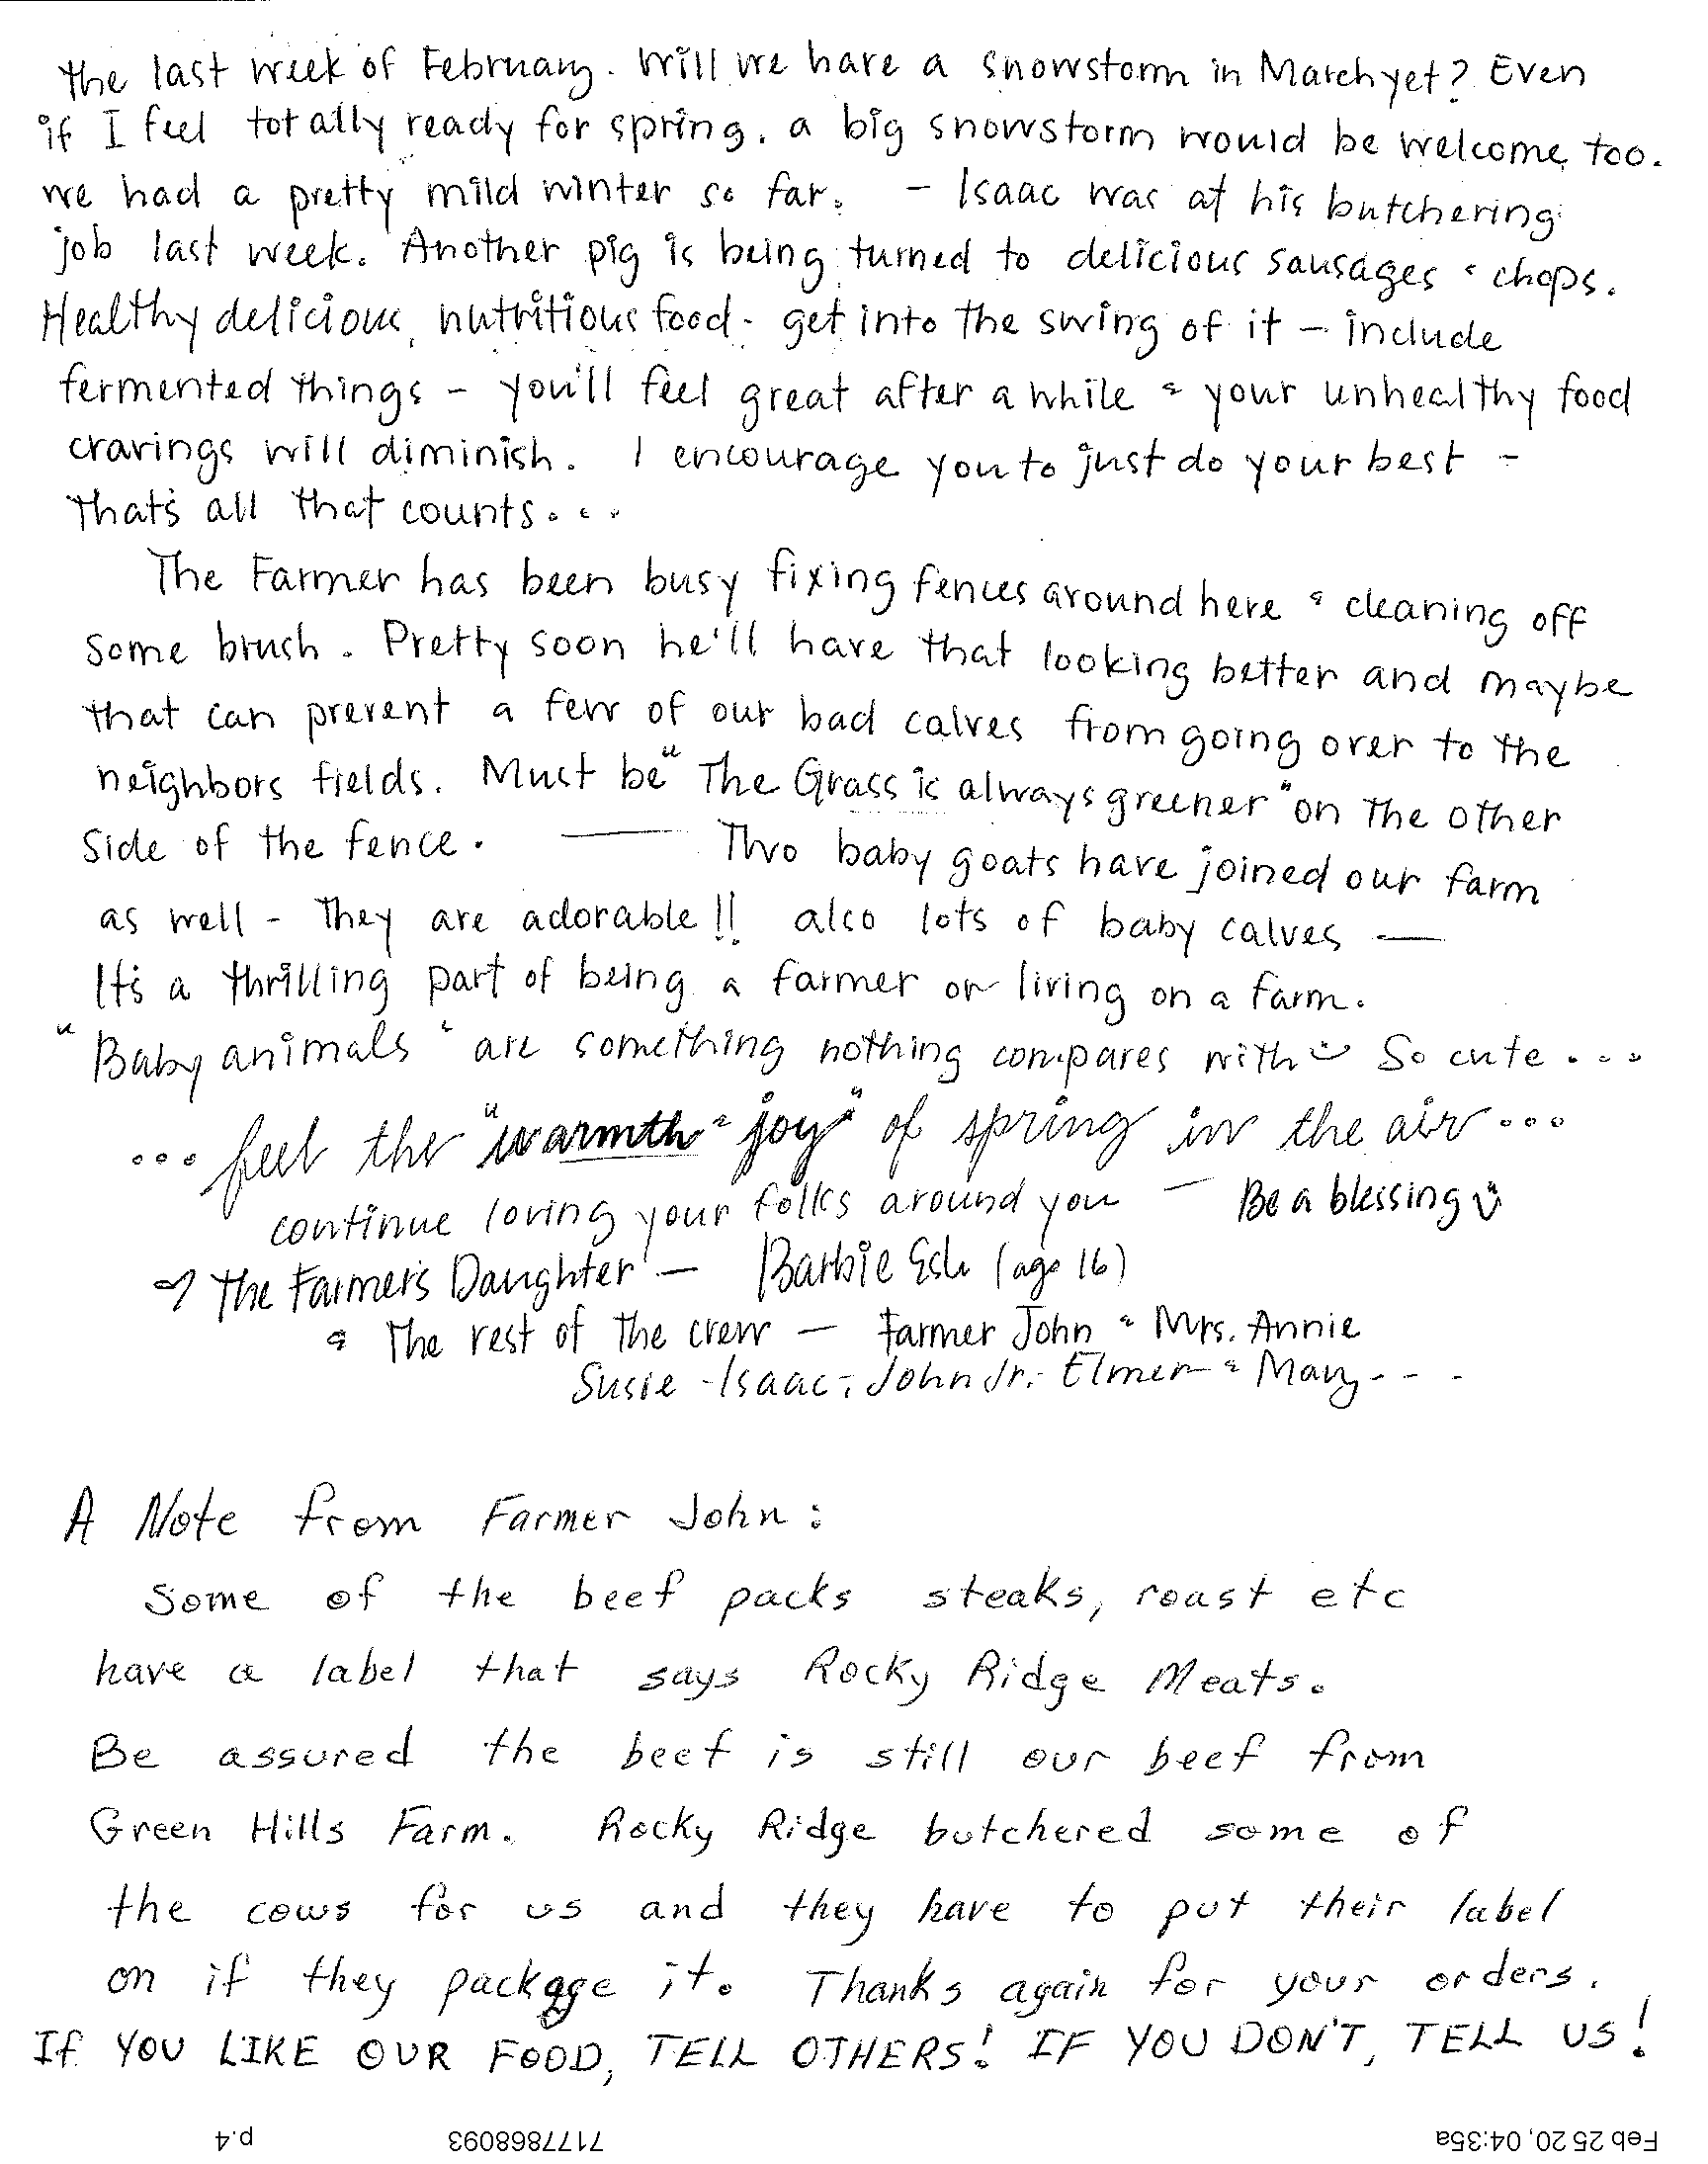 the last week of February. Will we have a snowstorm in March yet? Even
if I feel totally ready for spring. a big snowstorm would be welcome too.
We had a pretty mild winter so far. - Isaac was at his butchering
job last week. Another pig is being turned to delicious sausages & chops.
Healthy delicious, nutritious food - get into the swing of it - include
fermented things - you'll feel great after a while & your unhealthy food
cravings will diminish. I encourage you to just do your best -
that's all that counts....
The Farmer has been busy fixing fences around here & cleaning off
some brush. Pretty soon he'll have that looking better and maybe
that can prevent a few of our bad calves from going over to the
neighbors fields. Must be "The Grass is always greener" on the other
side of the fence. — Two baby goats have joined our farm
as well - they are adorable!! also lots of baby calves —
It's a thrilling part of being a farmer or living on a farm.
"Baby animals" are something nothing compares with ☺ So cute....
...feel the "warmth & joy" of spring in the air...
continue loving your folks around you — Be a blessing ☺
♡ The Farmer's Daughter — Barbie Esh (age 16)
& The rest of the crew — Farmer John & Mrs. Annie
Susie - Isaac - John Jr. - Elmer & Mary - - -
A Note from Farmer John:
Some of the beef packs steaks, roast etc
have a label that says Rocky Ridge Meats.
Be assured the beef is still our beef from
Green Hills Farm. Rocky Ridge butchered some of
the cows for us and they have to put their label
on if they package it. Thanks again for your orders.
If YOU LIKE OUR FOOD, TELL OTHERS! IF YOU DON'T, TELL US!
Feb 25 20, 04:35a 7177868093 p.4